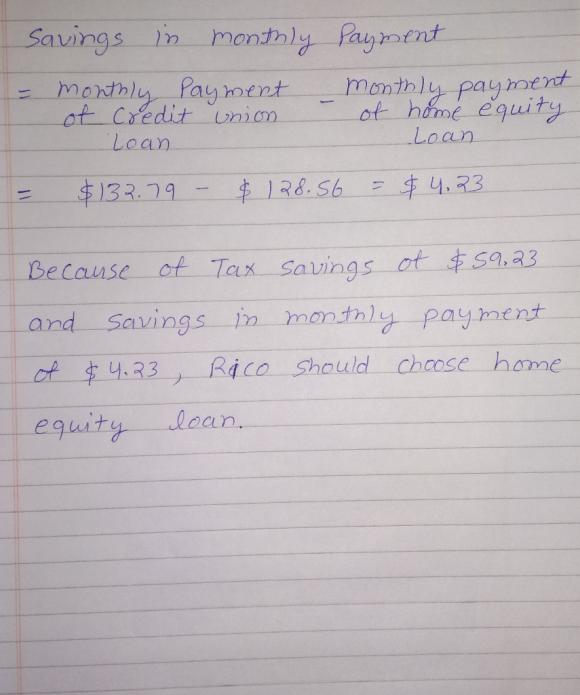 Savings in monthly Payment
= monthly Payment of Credit union Loan - monthly payment of home equity Loan
= $132.79 - $ 128.56 = $ 4.23
Because of Tax savings of $59.23
and savings in monthly payment
of $4.23, Rico should choose home
equity loan.